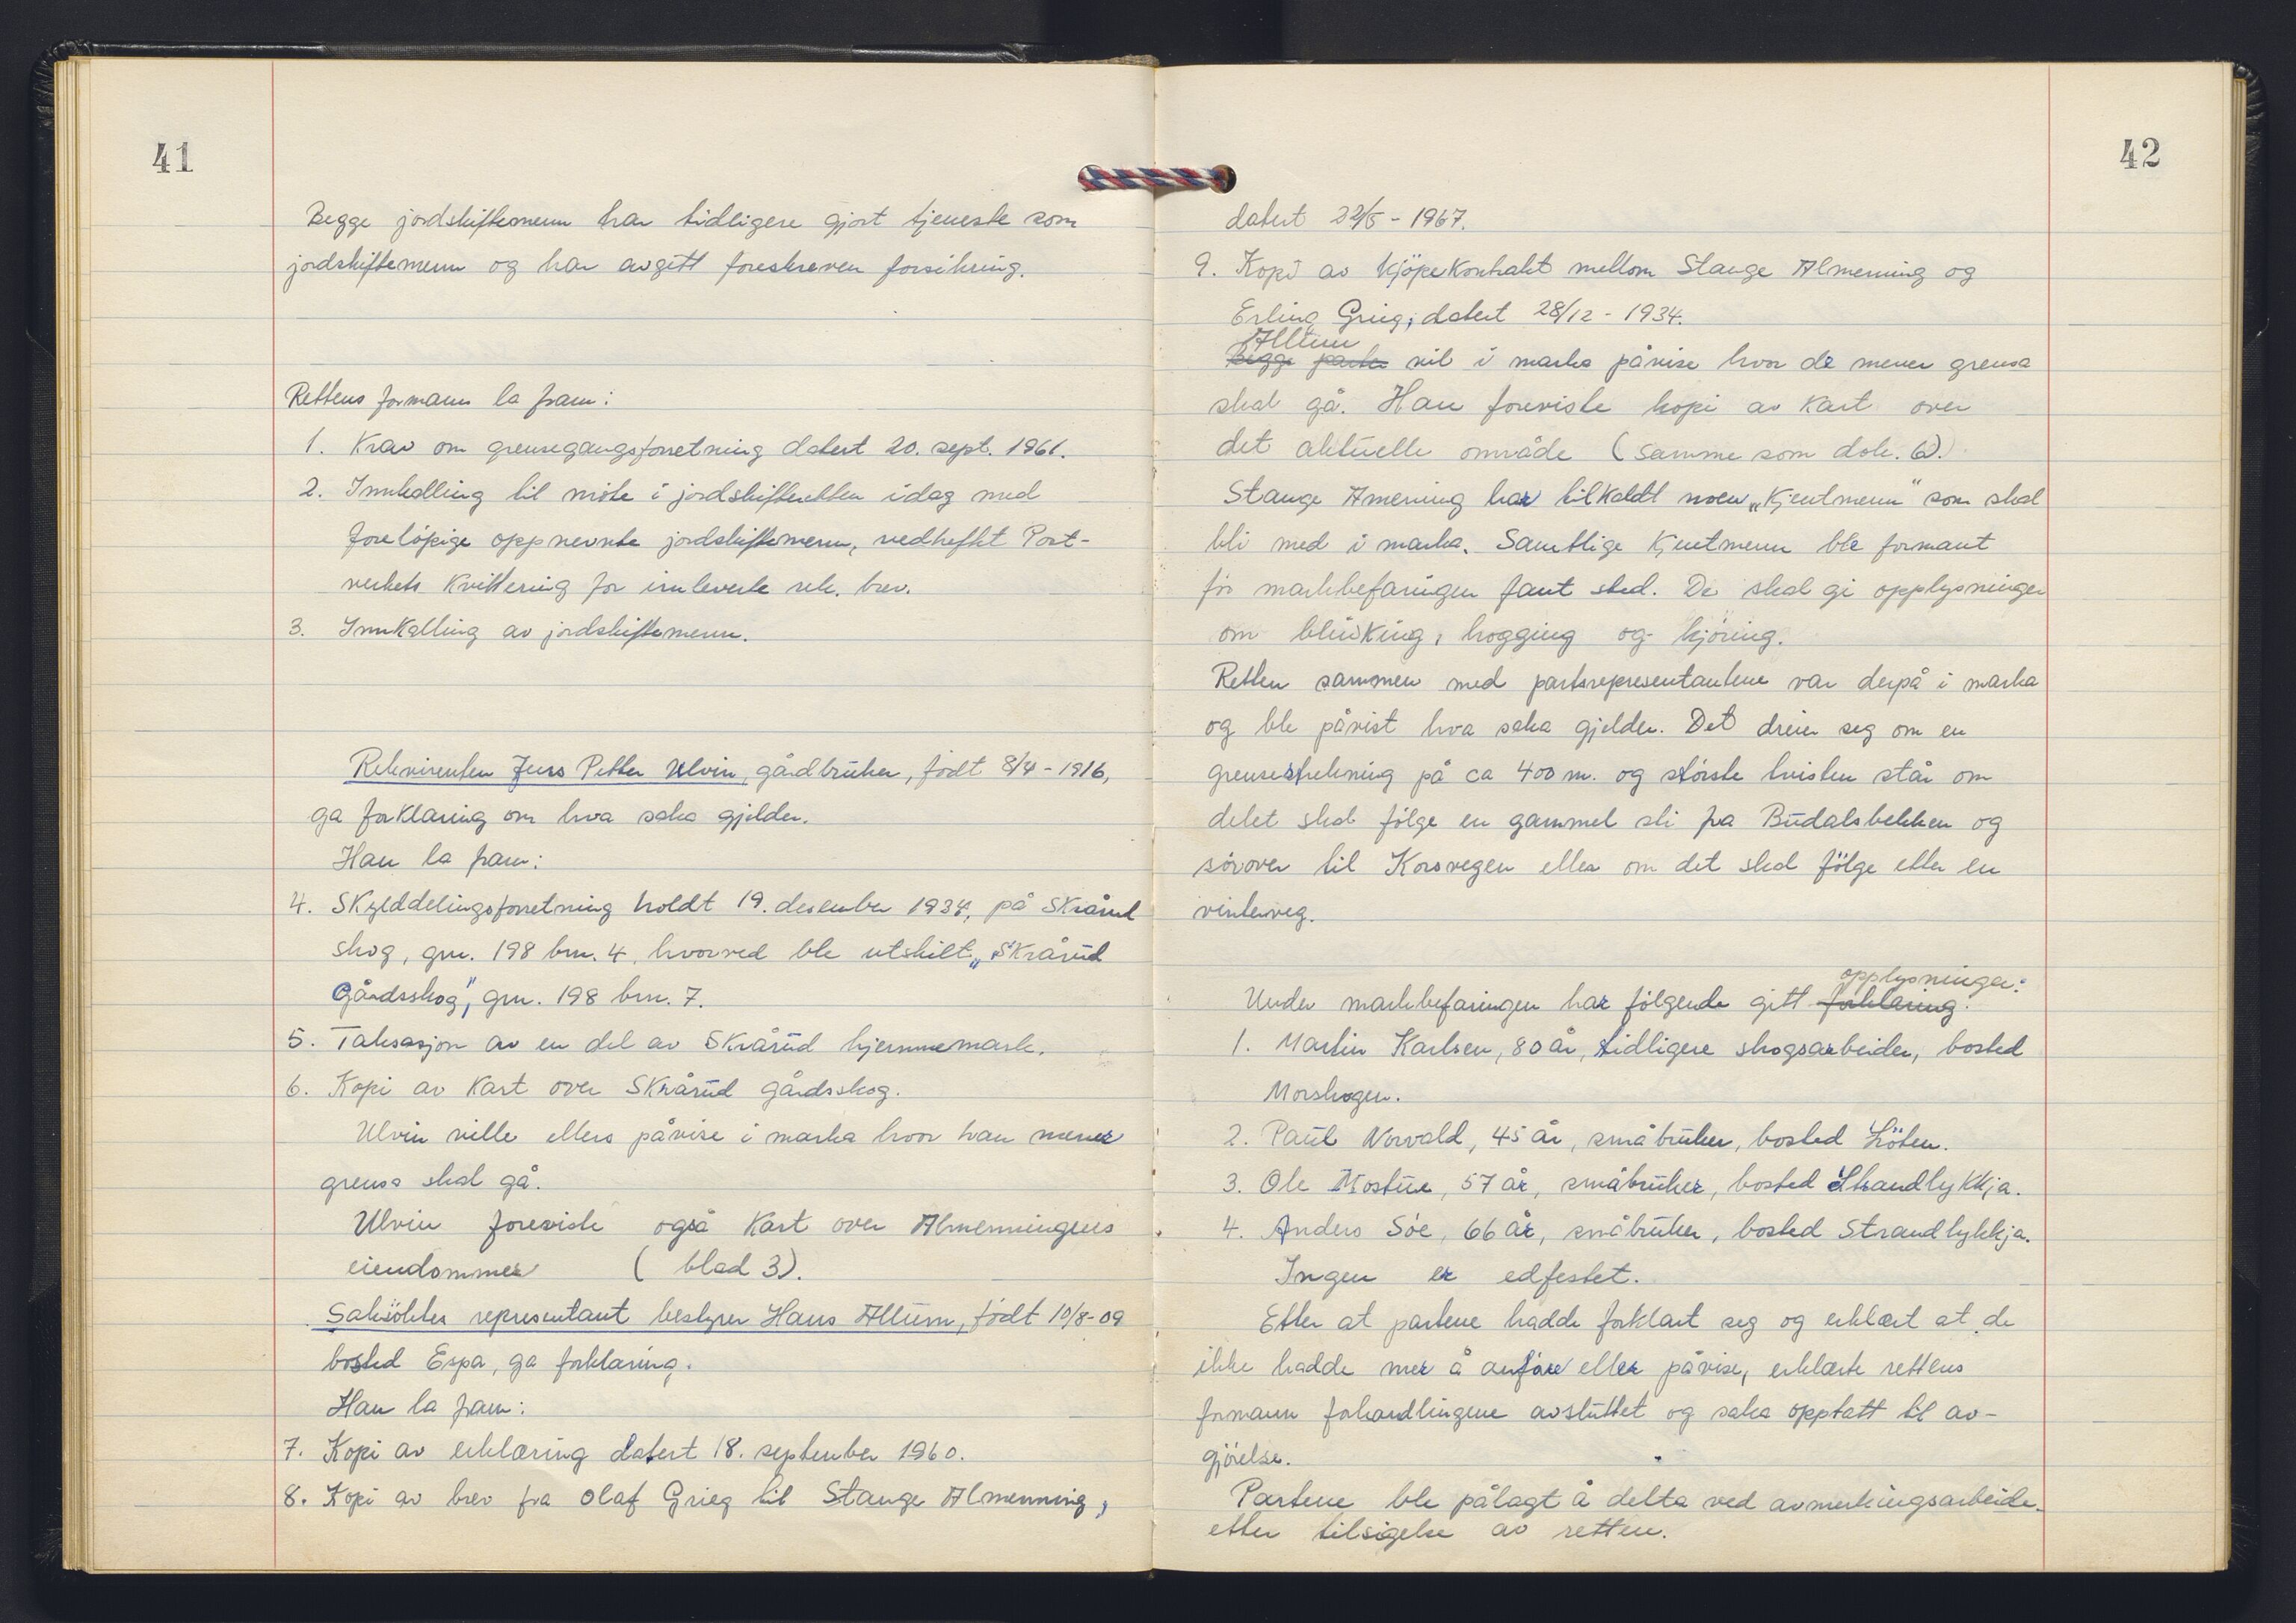 41
Begge jordskiftemenn har tidligere gjort tjeneste som
jordskiftemenn og har avgitt foreskreven forsikring.
Rettens formann la fram:
1. Krav om grensegangsforretning datert 20. sept. 1961.
2. Innkalling til møte i jordskifteretten idag med
foreløpige oppnevnte jordskiftemenn, vedheftet Post-
verkets kvittering for innleverte rek. brev.
3. Innkalling av jordskiftemenn.
Rekvirenten Jens Petter Ulvin, gårdbruker, født 8/4-1916,
ga forklaring om hva saka gjelder.
Han la fram:
4. Skylddelingsforretning holdt 19. desember 1934, på Skårud
skog, gnr. 198 bnr. 4, hvorved ble utskilt „Skrårud
Gårdsskog", gnr. 198 bnr. 7.
5. Taksasjon av en del av Skrårud hjemmemark.
6. Kopi av kart over Skrårud gårdsskog.
Ulvin ville ellers påvise i marka hvor han mener
grensa skal gå.
Ulvin foreviste også kart over Almenningens
eiendommer ( blad 3).
Saksøktes representant bestyrer Hans Alltun, født 10/8-09
bosted Espa, ga forklaring.
Han la fram:
7. Kopi av erklæring datert 18. september 1960.
8. Kopi av brev fra Olaf Grieg til Stange Almenning,
42
datert 22/5 - 1967.
9. Kopi av kjöpekontrakt mellom Stange Almenning og
Erling Grieg, datert 28/12 - 1934.
Alltun
Begge parter vil i marka påvise hvor de mener grensa
skal gå. Han foreviste kopi av kart over
det aktuelle område (samme som dok. 6).
Stange Amening har tilkaldt noen „Kjentmenn" som skal
bli med i marka. Samtlige kjentmenn ble formant
før markbefaringen fant sted. De skal gi opplysninger
om blinking, hogging og kjöring.
Retten sammen med partsrepresentantene var derpå i marka
og ble påvist hva saka gjelder. Det dreier seg om en
grensestrekning på ca 400 m. og største tvisten står om
delet skal fölge en gammel sti fra Budalsbekken og
sörover til Korsvegen eller om det skal fölge etter en
vinterveg.
opplysninger:
Under markbefaringen har fölgende gitt forklaring:
1. Martin Karlsen, 80 år, tidligere skogsarbeider, bosted
Morskogen.
2. Paul Norvald, 45 år, småbruker, bosted Löten.
3. Ole Mostue, 57 år, småbruker, bosted Strandlykkja.
4. Anders Söe, 66 år, småbruker, bosted Strandlykkja.
Ingen er edfestet.
Etter at partene hadde forklart seg og erklært at de
ikke hadde mer å anføre eller påvise, erklærte rettens
formann forhandlingene avsluttet og saka opptatt til av-
gjörelse.
Partene ble pålagt å delta ved avmerkingsarbeide
etter tilsigelse av retten.